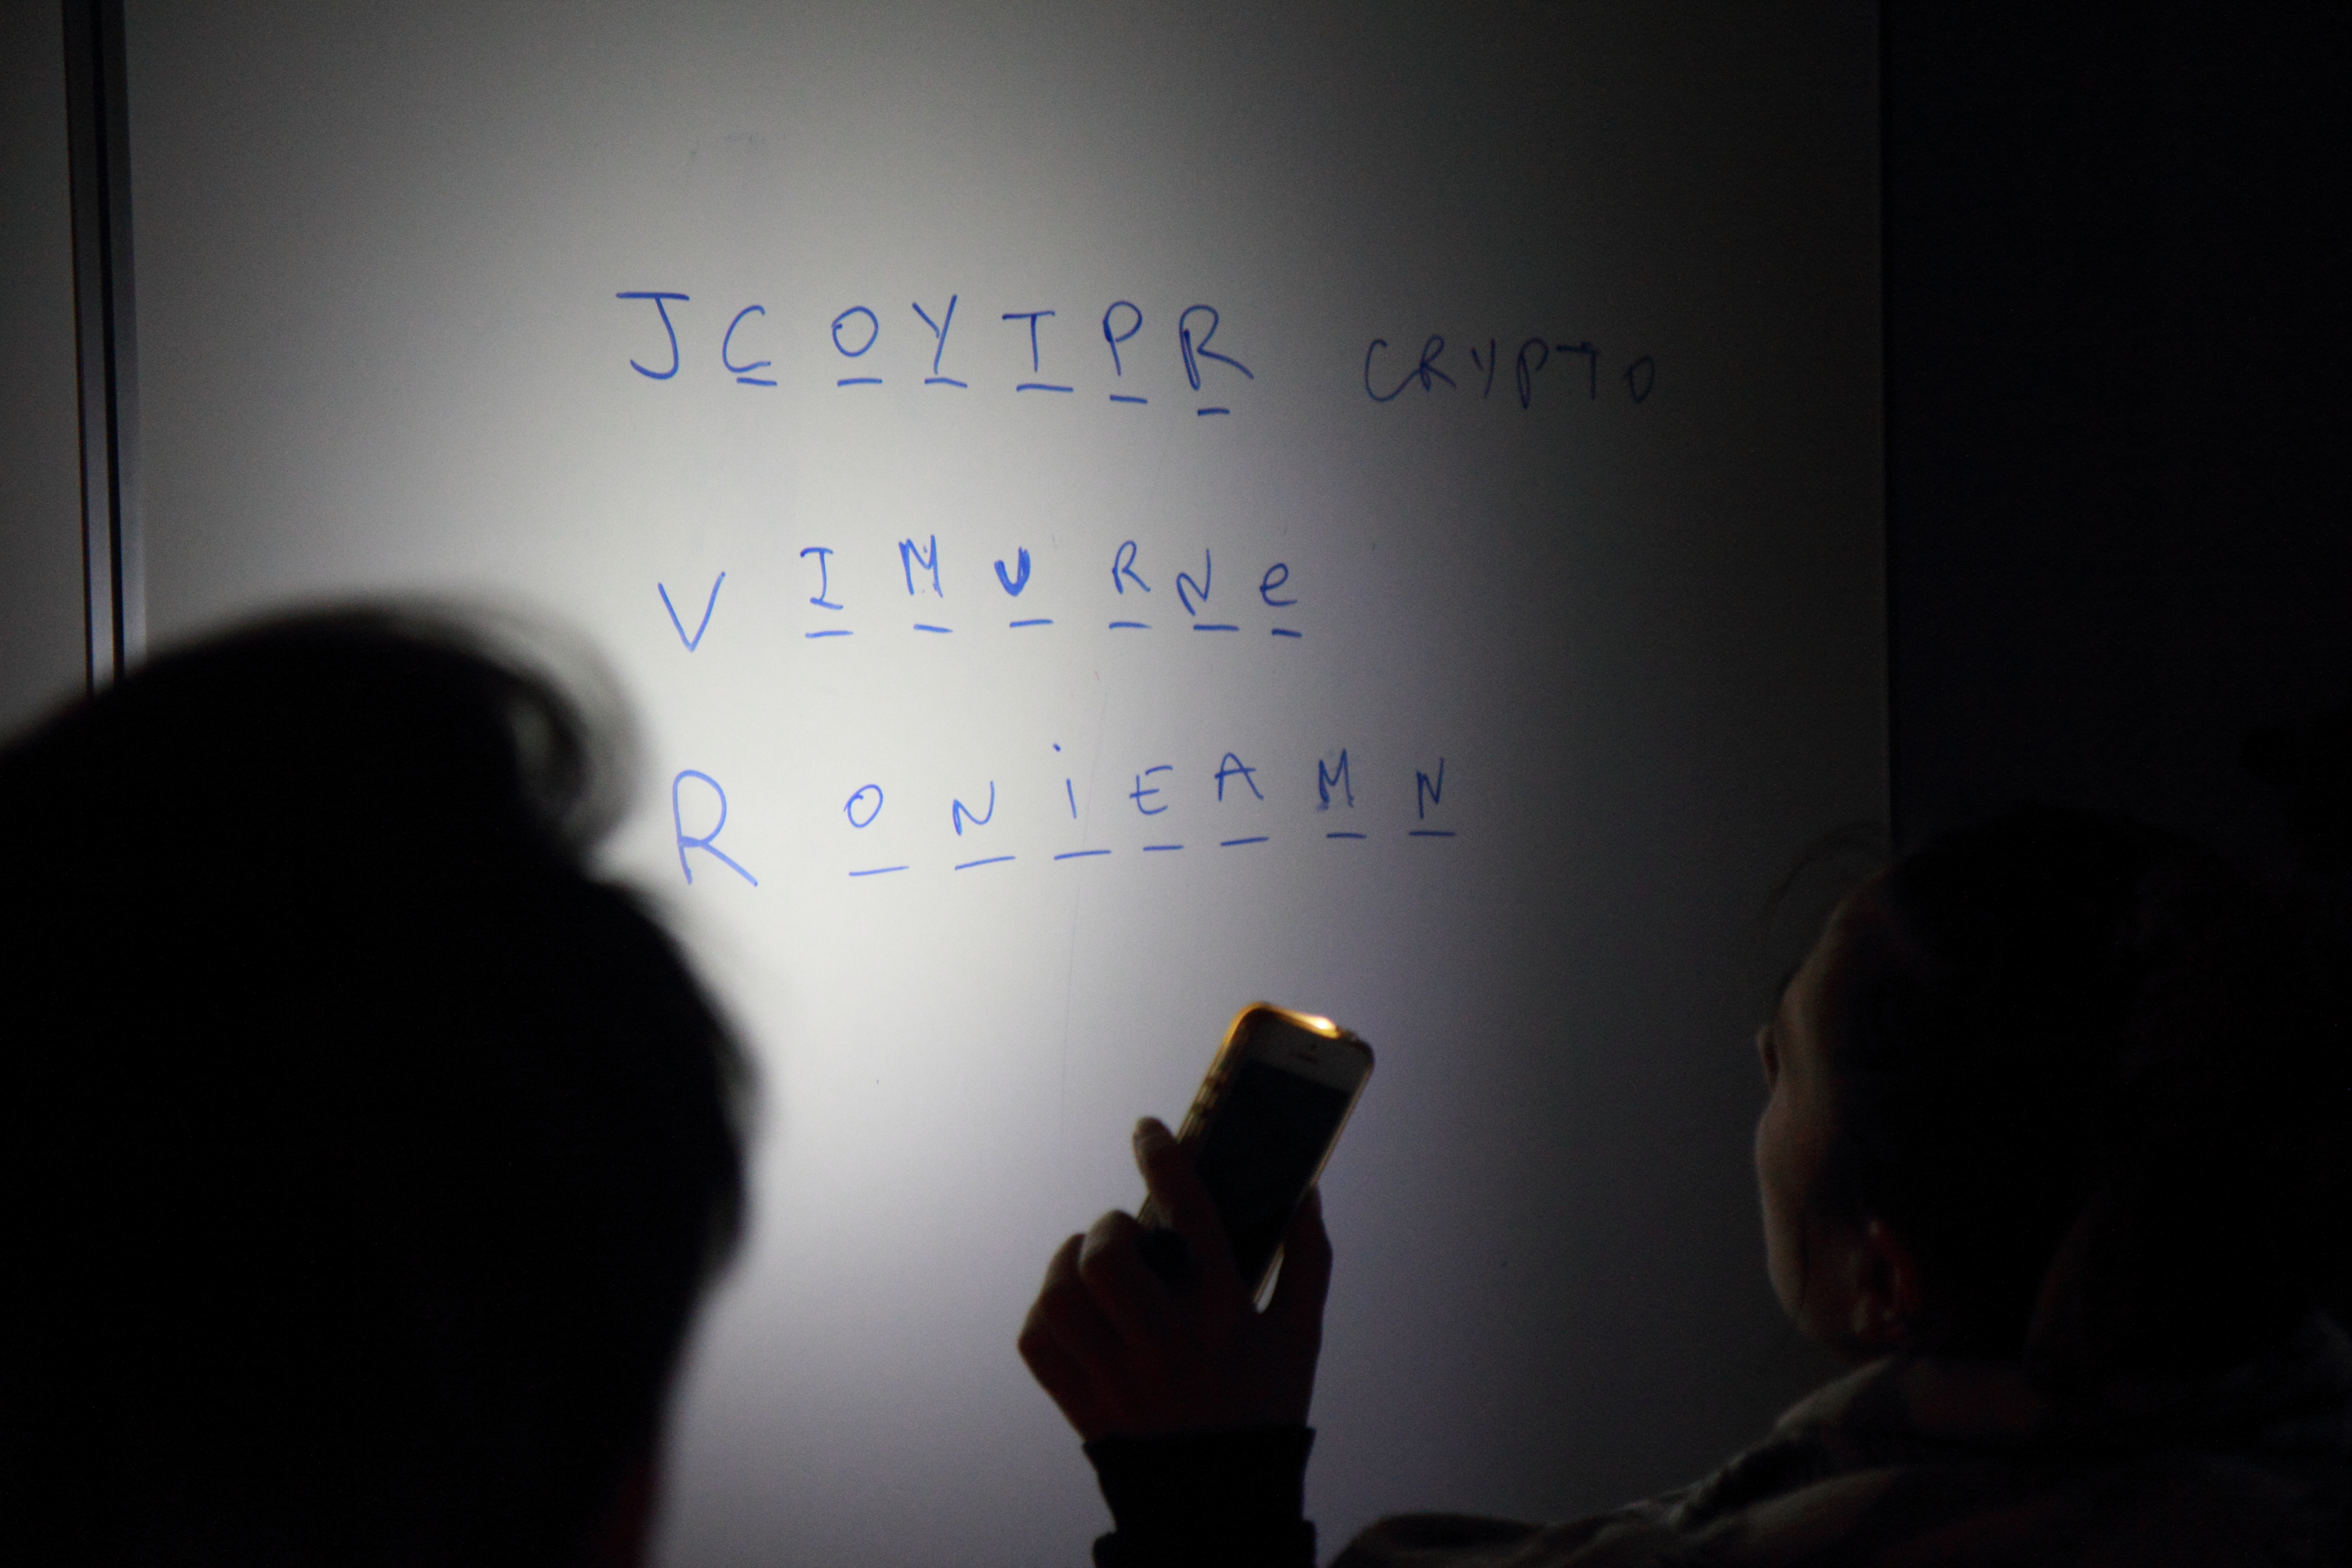 J C O Y T P R CRYPTO
V I M U R N e
R O N i E A M N